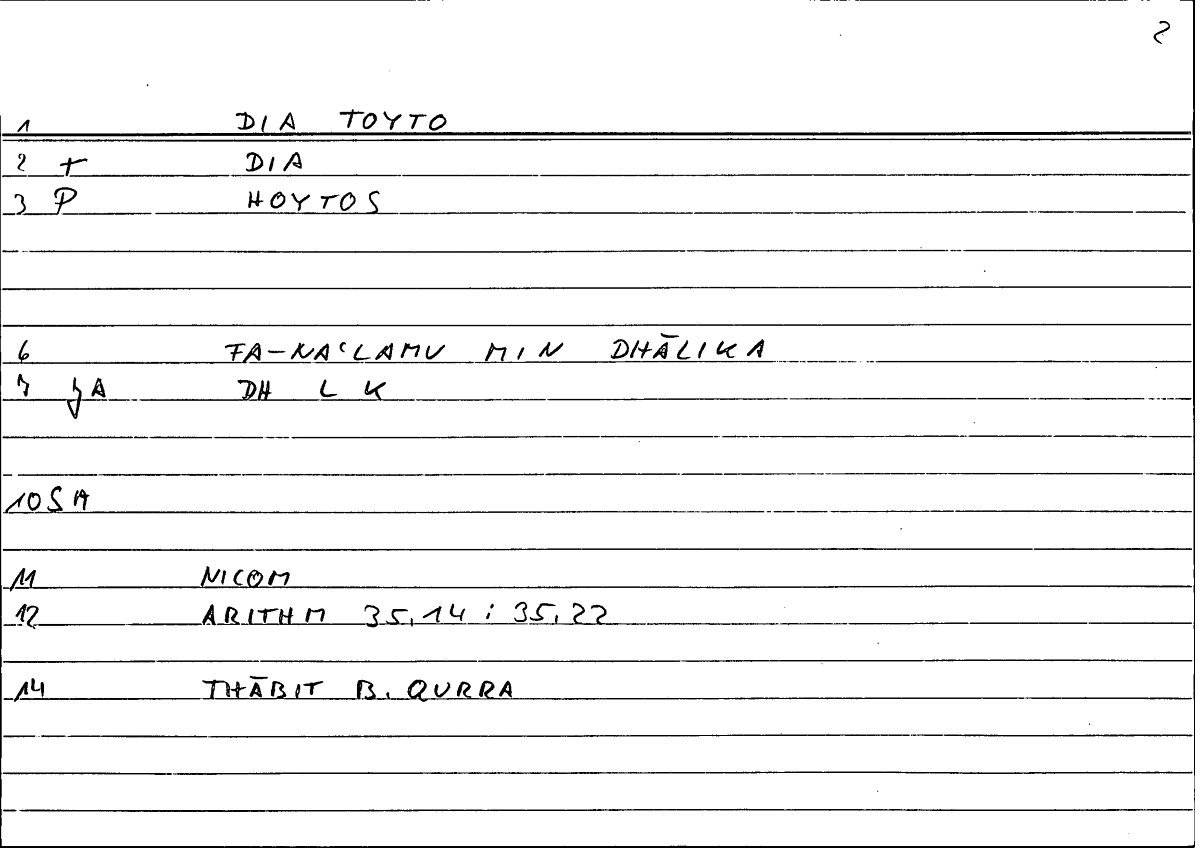 2
1 DIA TOYTO
2 + DIA
3 P HOYTOS
6 FA-NAʿLAMU MIN DHĀLIKA
7 A DH L K
10 S A
11 NICOM
12 ARITHM 35,14 : 35,22
14 THĀBIT B. QURRA